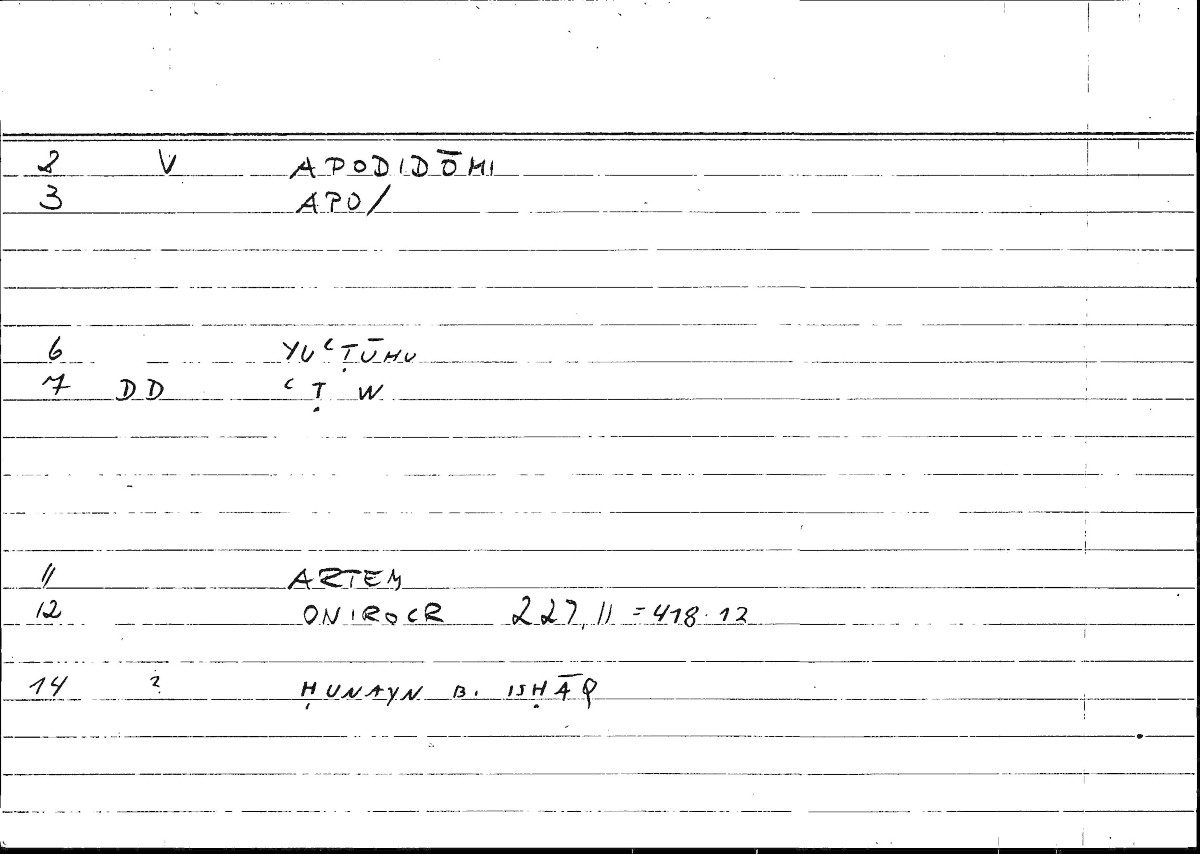 2 V APODIDŌMI
3 APO/
6 YUʿṬŪHU
7 DD ʿ Ṭ W
11 ARTEM
12 ONIROCR 227,11 = 418.12
14 ? ḤUNAYN B. ISḤĀQ